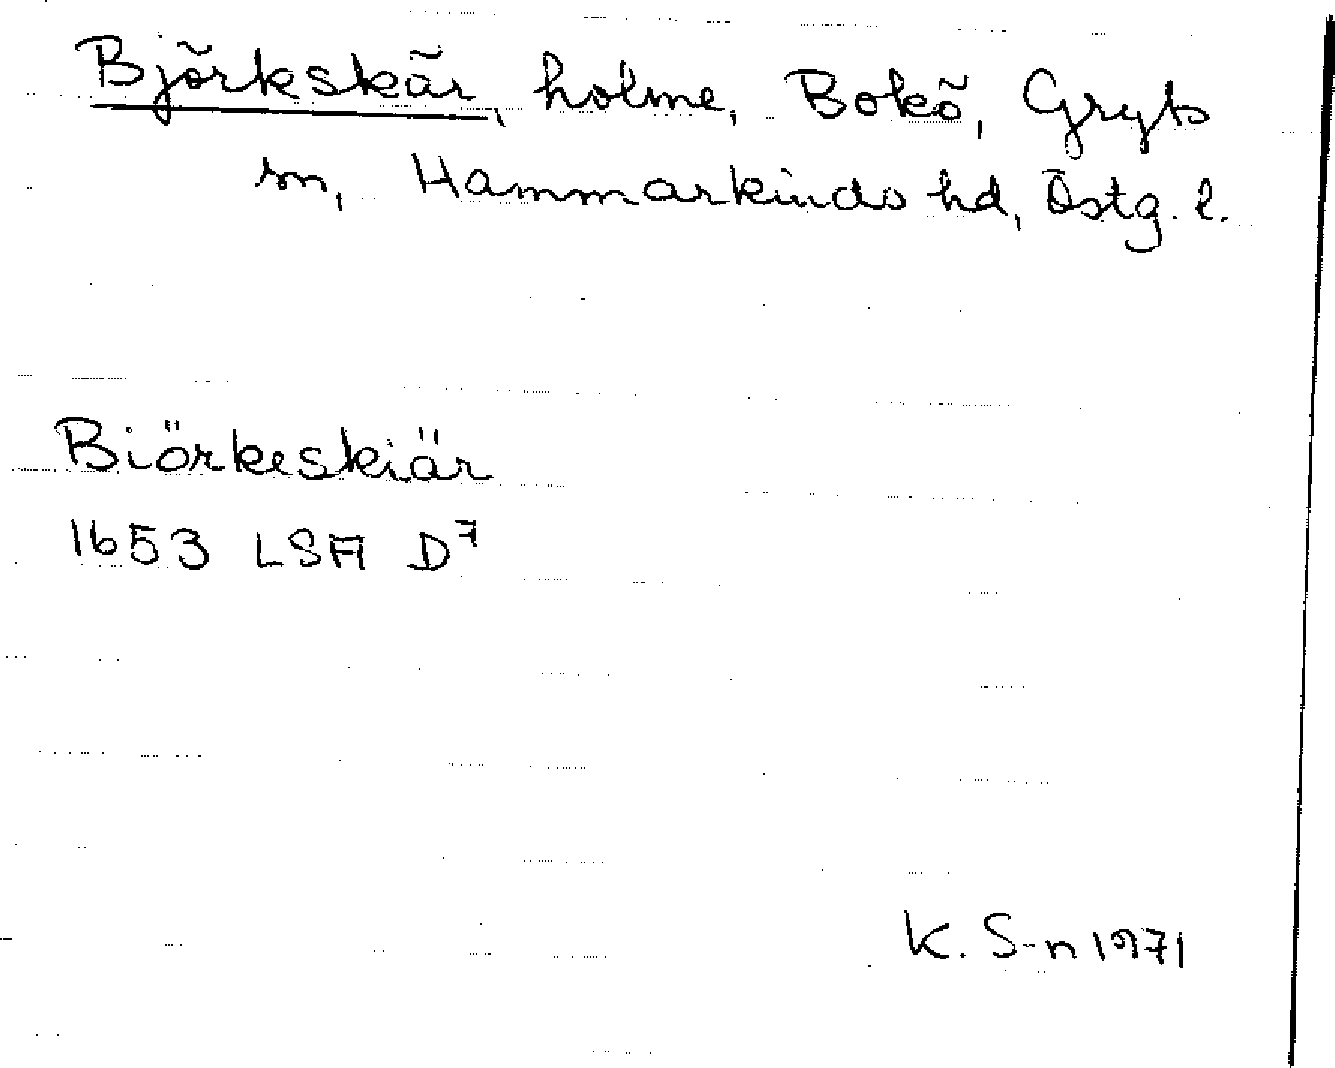 Björkskär, holme, Bokö, Gryts
sn, Hammarkinds hd, Östg. l.
Biörkeskiär
1653 LSA D⁷
K. S-n 1971